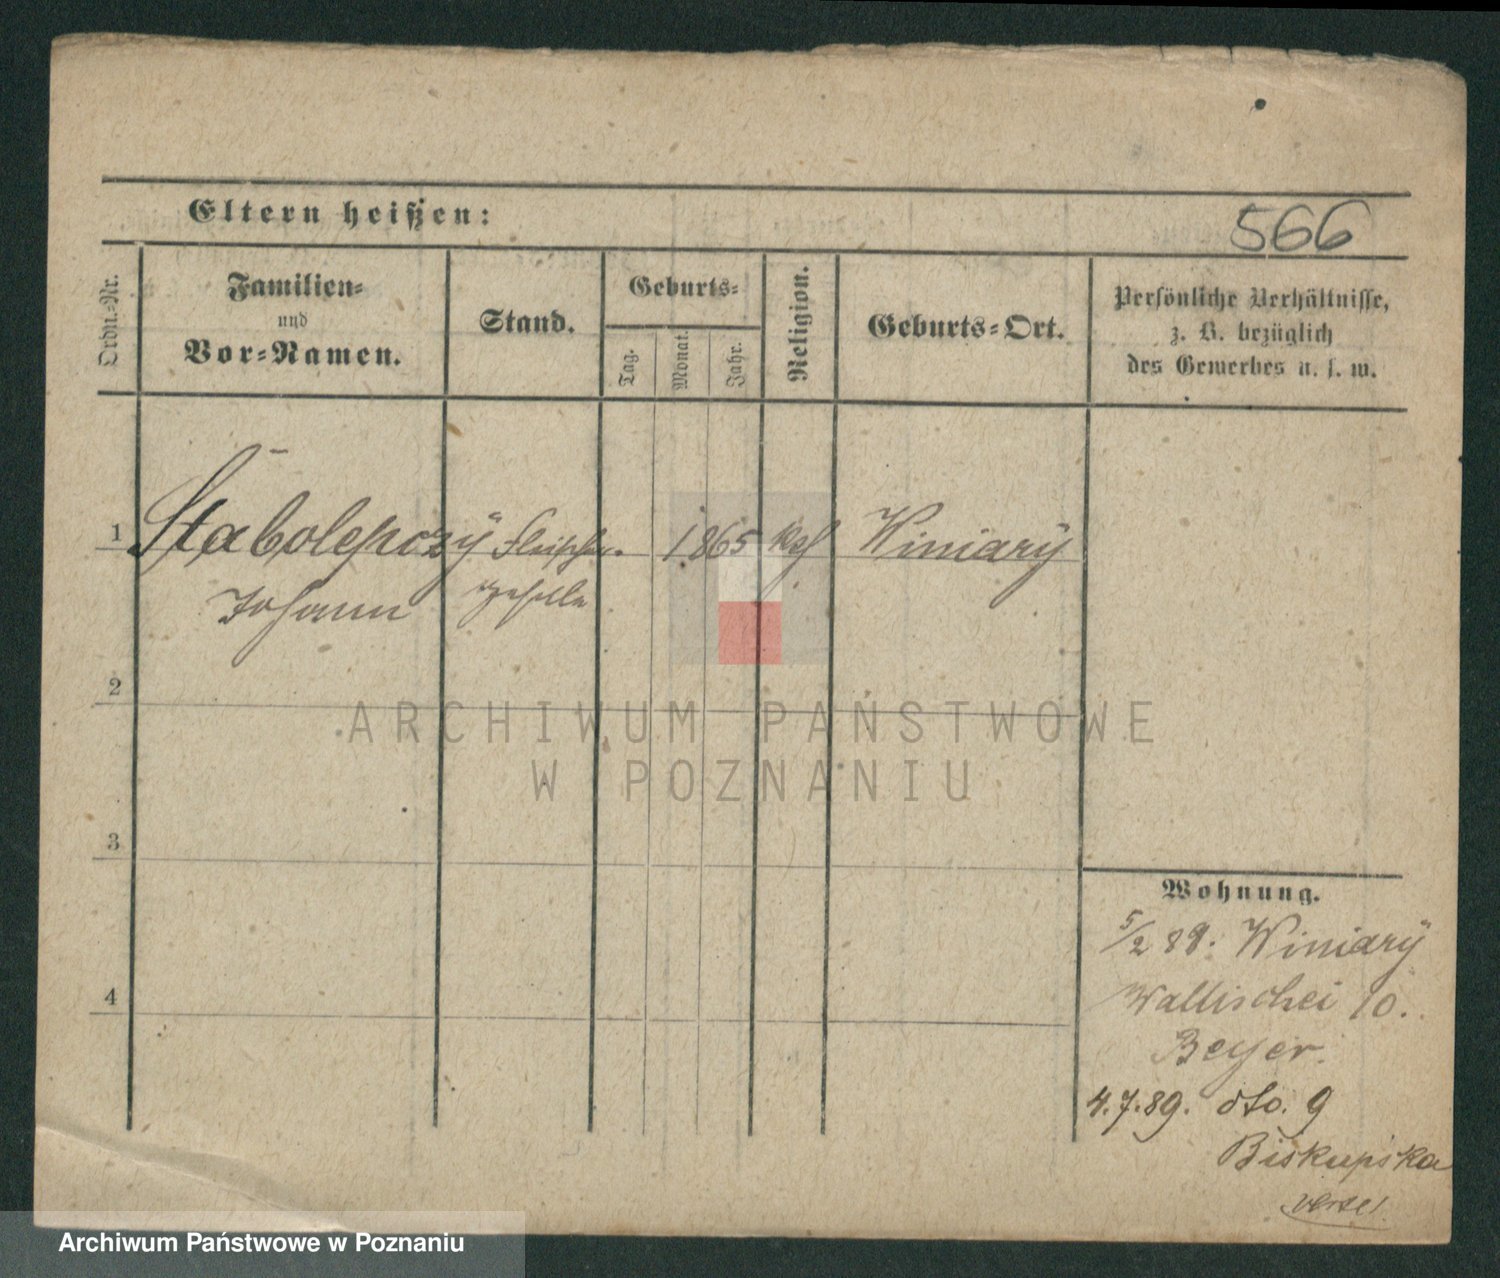 Eltern heißen:
566
Ordn.-Nr.
Familien-
und
Vor-Namen.
Stand.
Geburts-
Tag.
Monat.
Jahr.
Religion.
Geburts-Ort.
Persönliche Verhältnisse,
z. B. bezüglich
des Gewerbes u. s. w.
1 Stabolepszy Fleischer- 1865 kath Winiary
Johann geselle
2
3
4
Wohnung.
5/2 89. Winiary
Wallischei 10.
Beyer.
4.7.89. dto. 9
Biskupska
ARCHIWUM PAŃSTWOWE
W POZNANIU
Archiwum Państwowe w Poznaniu